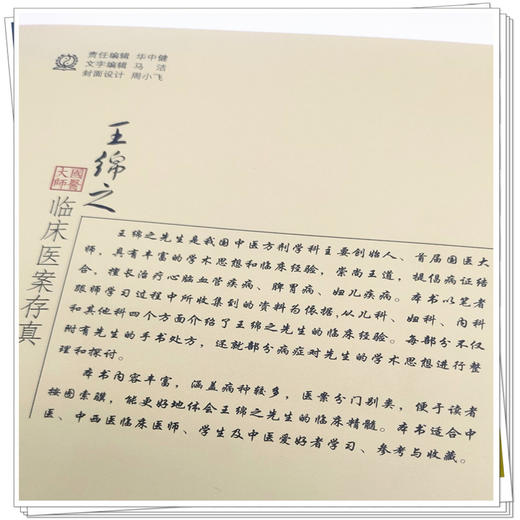 责任编辑 华中健
文字编辑 马 洁
封面设计 周小飞
王绵之
國醫大師
临床医案存真
王绵之先生是我国中医方剂学科主要创始人、首届国医大
师，具有丰富的学术思想和临床经验，崇尚王道，提倡病证结
合，擅长治疗心脑血管疾病、脾胃病、妇儿疾病。本书以笔者
跟师学习过程中所收集到的资料为依据，从儿科、妇科、内科
和其他科四个方面介绍了王绵之先生的临床经验。每部分不仅
附有先生的手书处方，还就部分病症对先生的学术思想进行整
理和探讨。
本书内容丰富，涵盖病种较多，医案分门别类，便于读者
按图索骥，能更好地体会王绵之先生的临床精髓。本书适合中
医、中西医临床医师、学生及中医爱好者学习、参考与收藏。